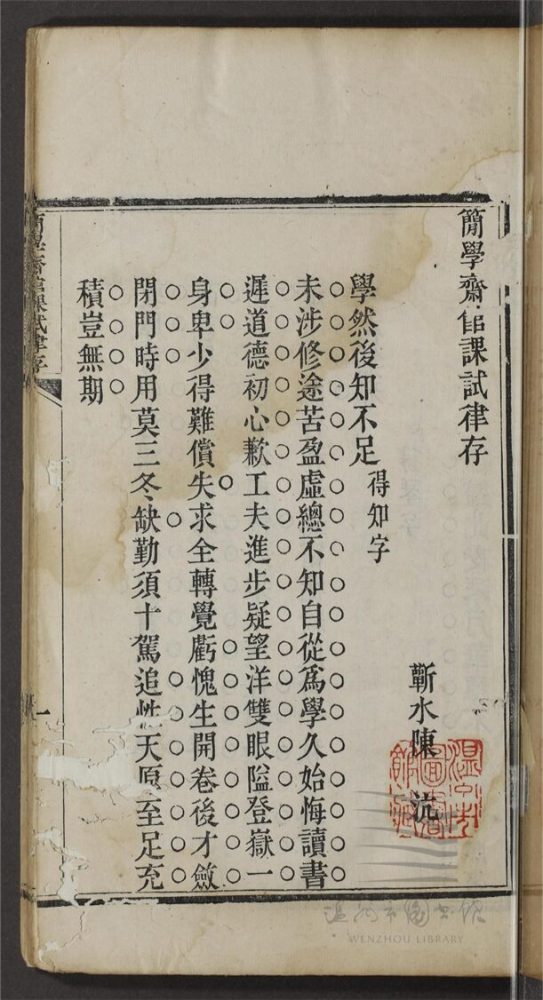 簡學齋館課試律存
蘄水陳沆
學然後知不足 得知字
未涉修途苦盈虛總不知自從爲學久始悔讀書
遲道德初心歉工夫進步疑望洋雙眼隘登嶽一
身卑少得難償失求全轉覺虧愧生開卷後才斂
閉門時用莫三冬缺勤須十駕追性天原至足充
積豈無期
簡學齋館課試律存
一
溫州市圖書館藏
溫州市圖書館
WENZHOU LIBRARY